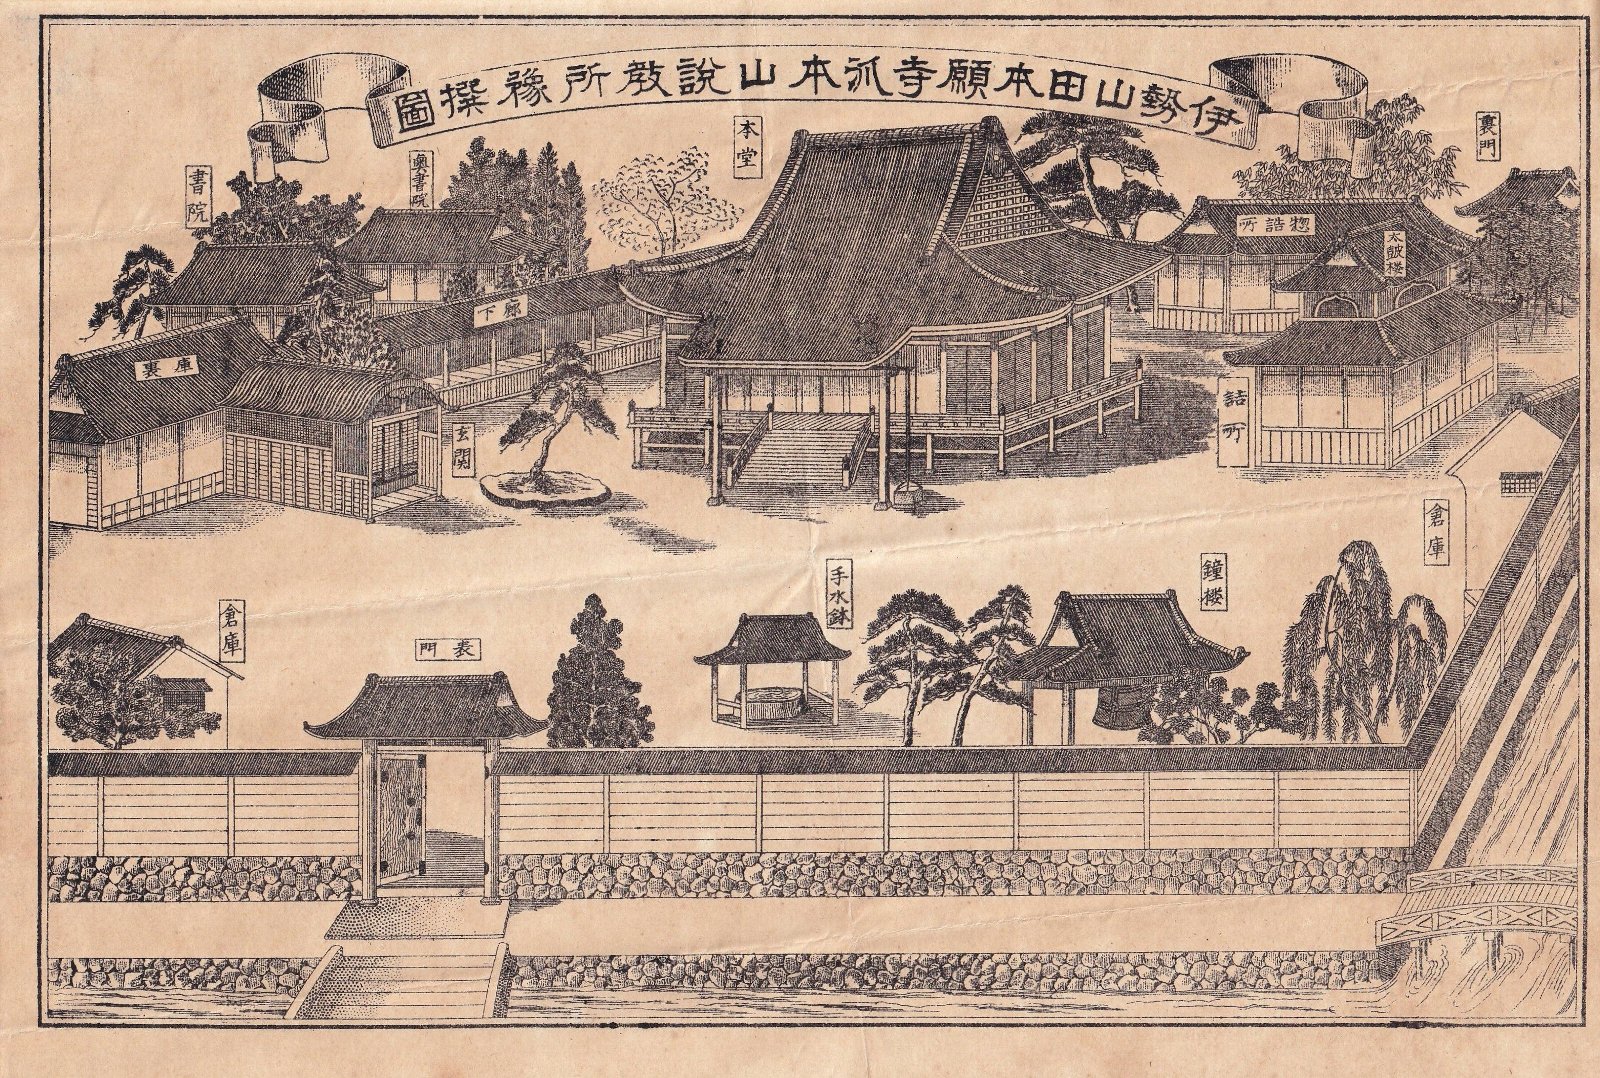 伊勢山田本願寺派本山說教所豫撰圖
裏門
本堂
奥書院
書院
惣詰所
太皷楼
廊下
庫裏
詰所
玄関
倉庫
鐘楼
手水鉢
倉庫
表門